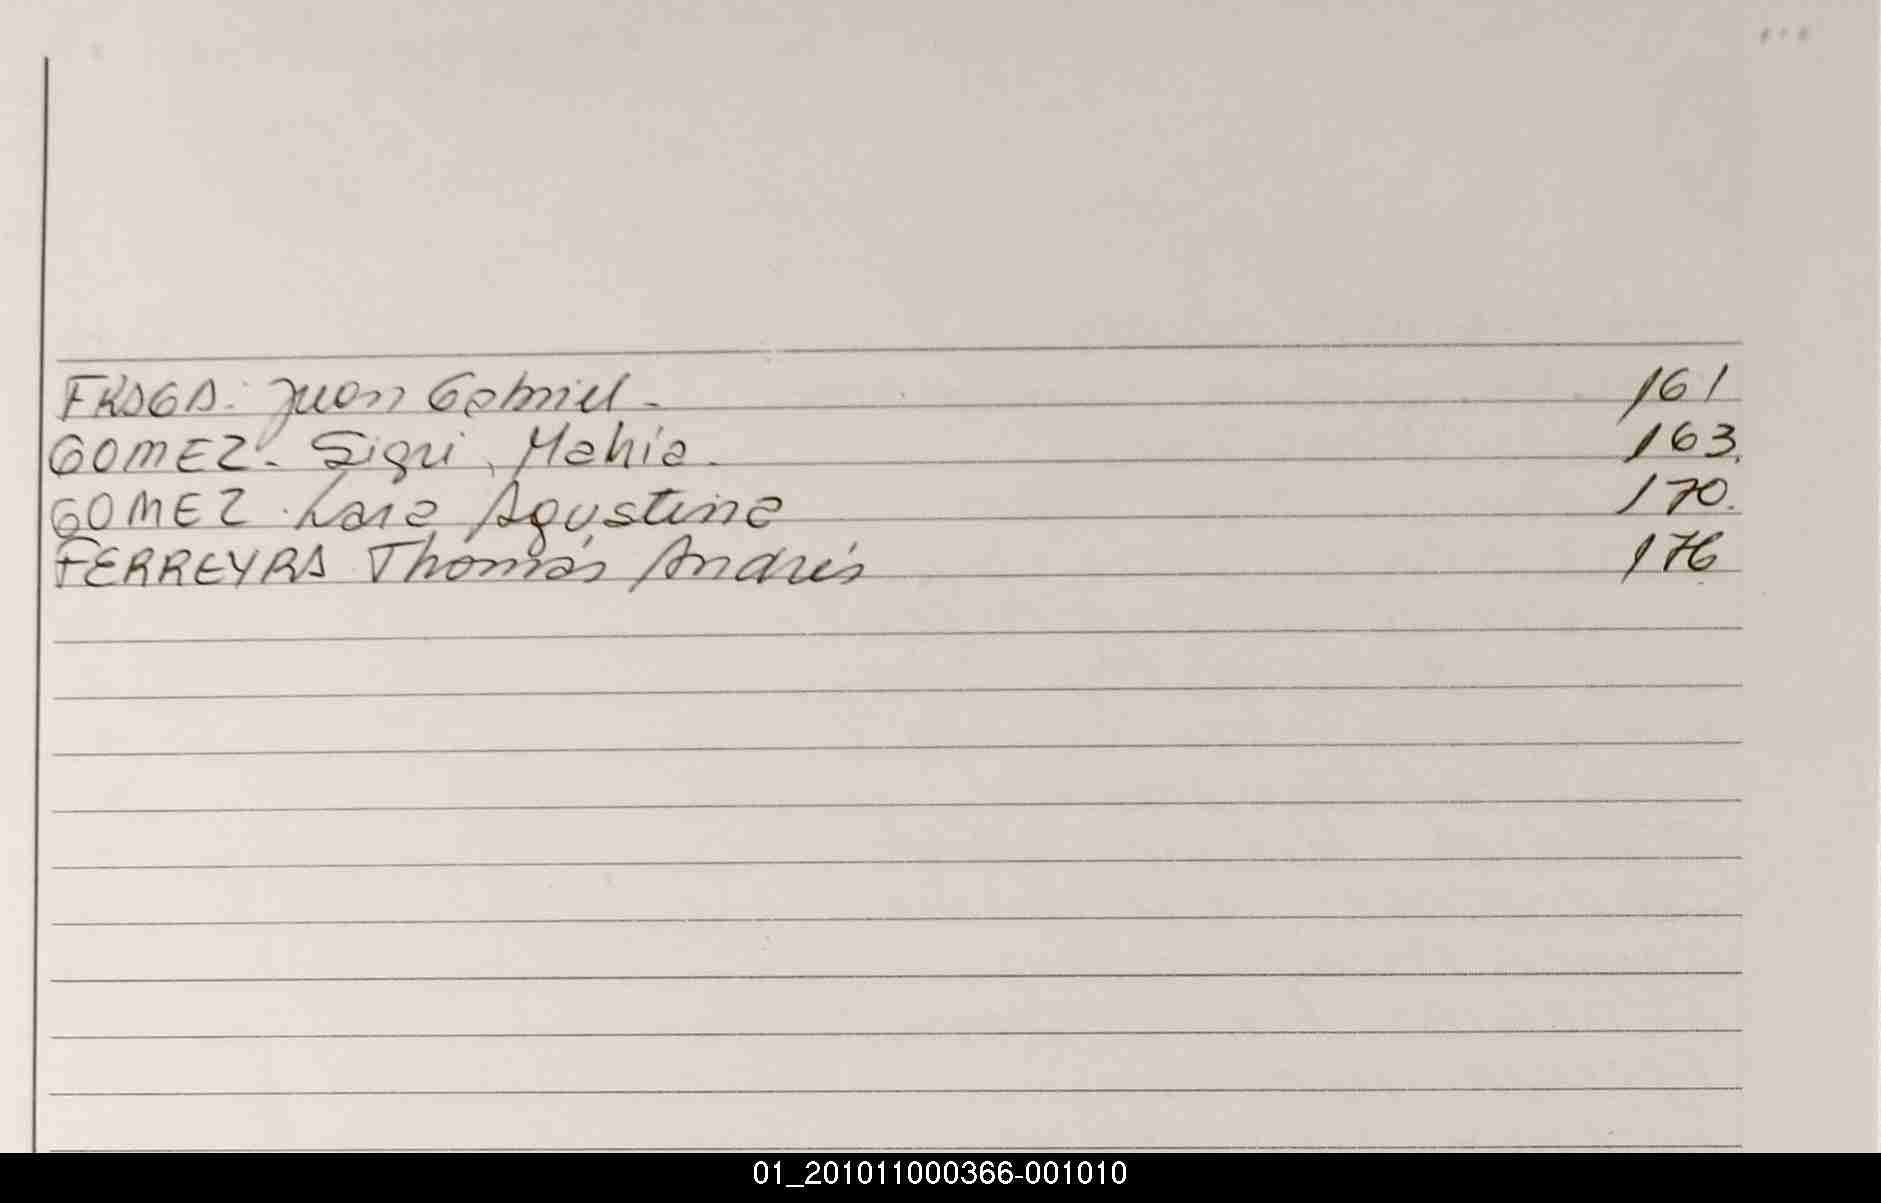 FRAGA. Juan Gabriel - 161
GOMEZ - Siqui, Mahia. 163.
GOMEZ. Lara Agustina 170.
FERREYRA Thomás Andrés 176
01_201011000366-001010